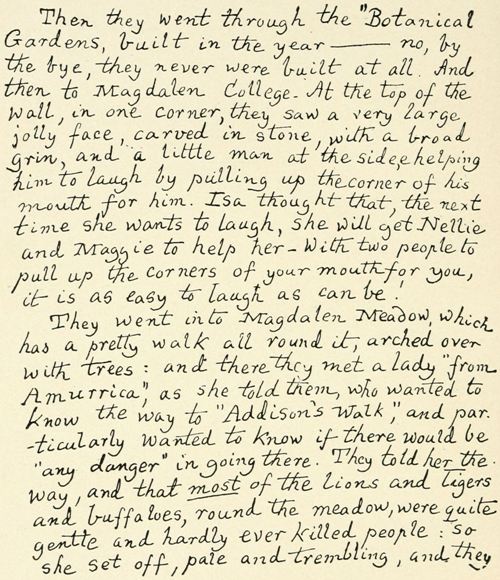 Then they went through the "Botanical
Gardens, built in the year —— no, by
the bye, they never were built at all. And
then to Magdalen College. At the top of the
wall, in one corner, they saw a very large
jolly face, carved in stone, with a broad
grin, and a little man at the side, helping
him to laugh by pulling up the corner of his
mouth for him. Isa thought that, the next
time she wants to laugh, she will get Nellie
and Maggie to help her - With two people to
pull up the corners of your mouth for you,
it is as easy to laugh as can be!
They went into Magdalen Meadow, which
has a pretty walk all round it, arched over
with trees: and there they met a lady "from
Amurrica", as she told them, who wanted to
know the way to "Addison's Walk", and par
-ticularly wanted to know if there would be
"any danger" in going there. They told her the
way, and that most of the lions and tigers
and buffaloes, round the meadow, were quite
gentle and hardly ever killed people: so
she set off, pale and trembling, and they